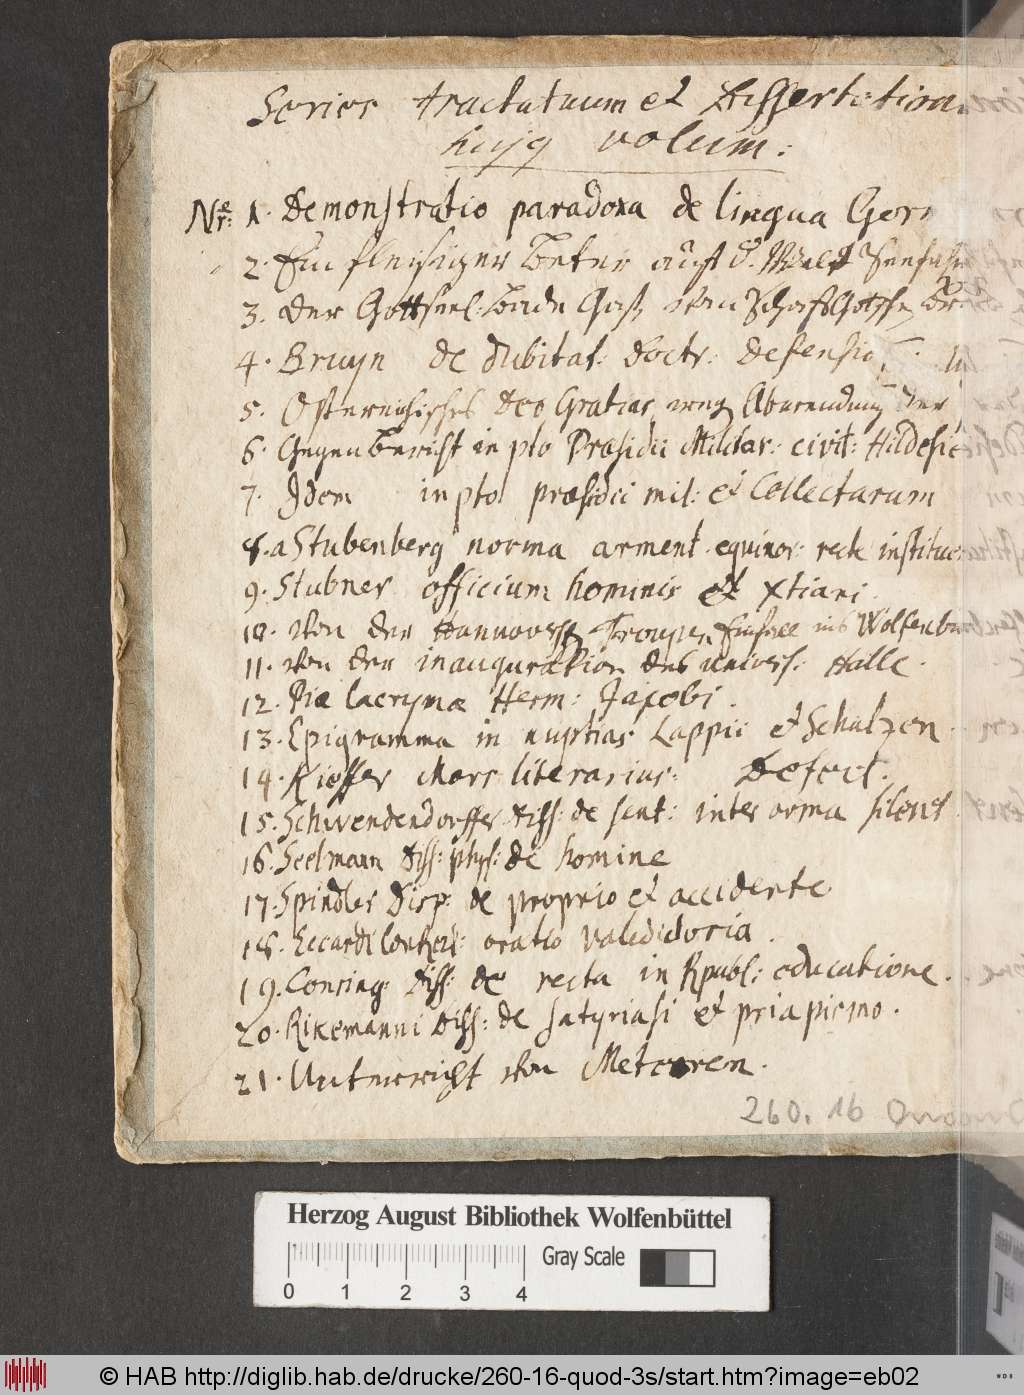 Series tractatuum et Dissertation
hujq volum:
Nr: 1. Demonstratio paradoxa de lingua Ger
2. Ein fleisiger Beter auf d. Welt
3. Der Gottseel: von Schaffgotsche
4. Bruyn de dubitat: doctr: defensio
5. Ostereichisches Deo Gratias weg Abwendung der
6. Gegen Bericht in pto Præsidii Militar: civit: Hildesie
7. Idem in pto præsidii mil: et Collectarum
8. a Stubenberg norma arment. equinor: recte instituen
9. Stubner officium hominis et Xtiani.
10. Von der Hannoversch Trouppen Einfall ins Wolfenbu
11. Von der inauguration des univers: Halle.
12. Piæ lacrymæ Herm: Jacobi.
13. Epigramma in nuptias Lappii et Schulzen.
14. Kieffer Mars literarius: Defect.
15. Schwendendorffer diss: de sent: inter arma silent.
16. Seelmann diss: phys: de homine
17. Spindler Disp: de proprio et accidente
18. Eccardi oratio valedictoria.
19. Conring: diss: de recta in Rpubl: educatione.
20. Rikemanni Diss: de satyriasi et priapismo.
21. Unterricht von Meteoren.
260. 16 Quod
Herzog August Bibliothek Wolfenbüttel
Gray Scale
0 1 2 3 4
© HAB http://diglib.hab.de/drucke/260-16-quod-3s/start.htm?image=eb02